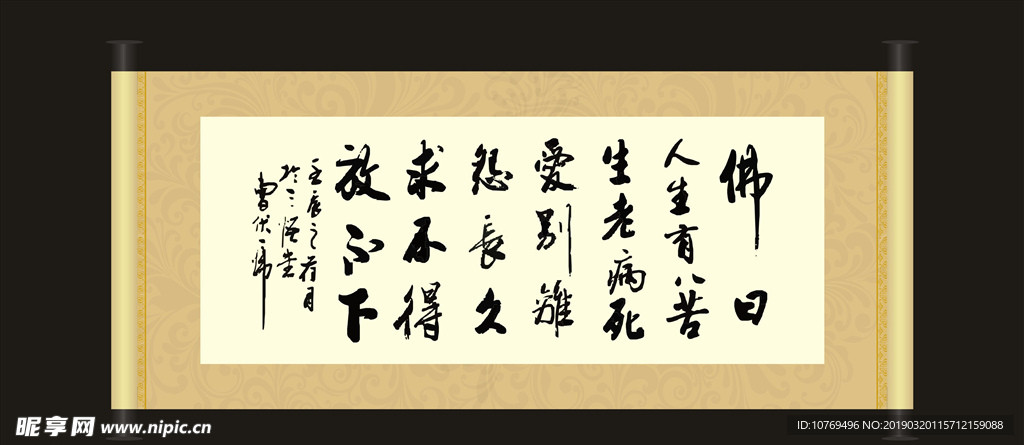 佛曰
人生有八苦
生老病死
愛别離
怨長久
求不得
放不下
壬辰之荷月
於三悟堂
昵享网 www.nipic.cn
ID:10769496 NO:20190320115712159088